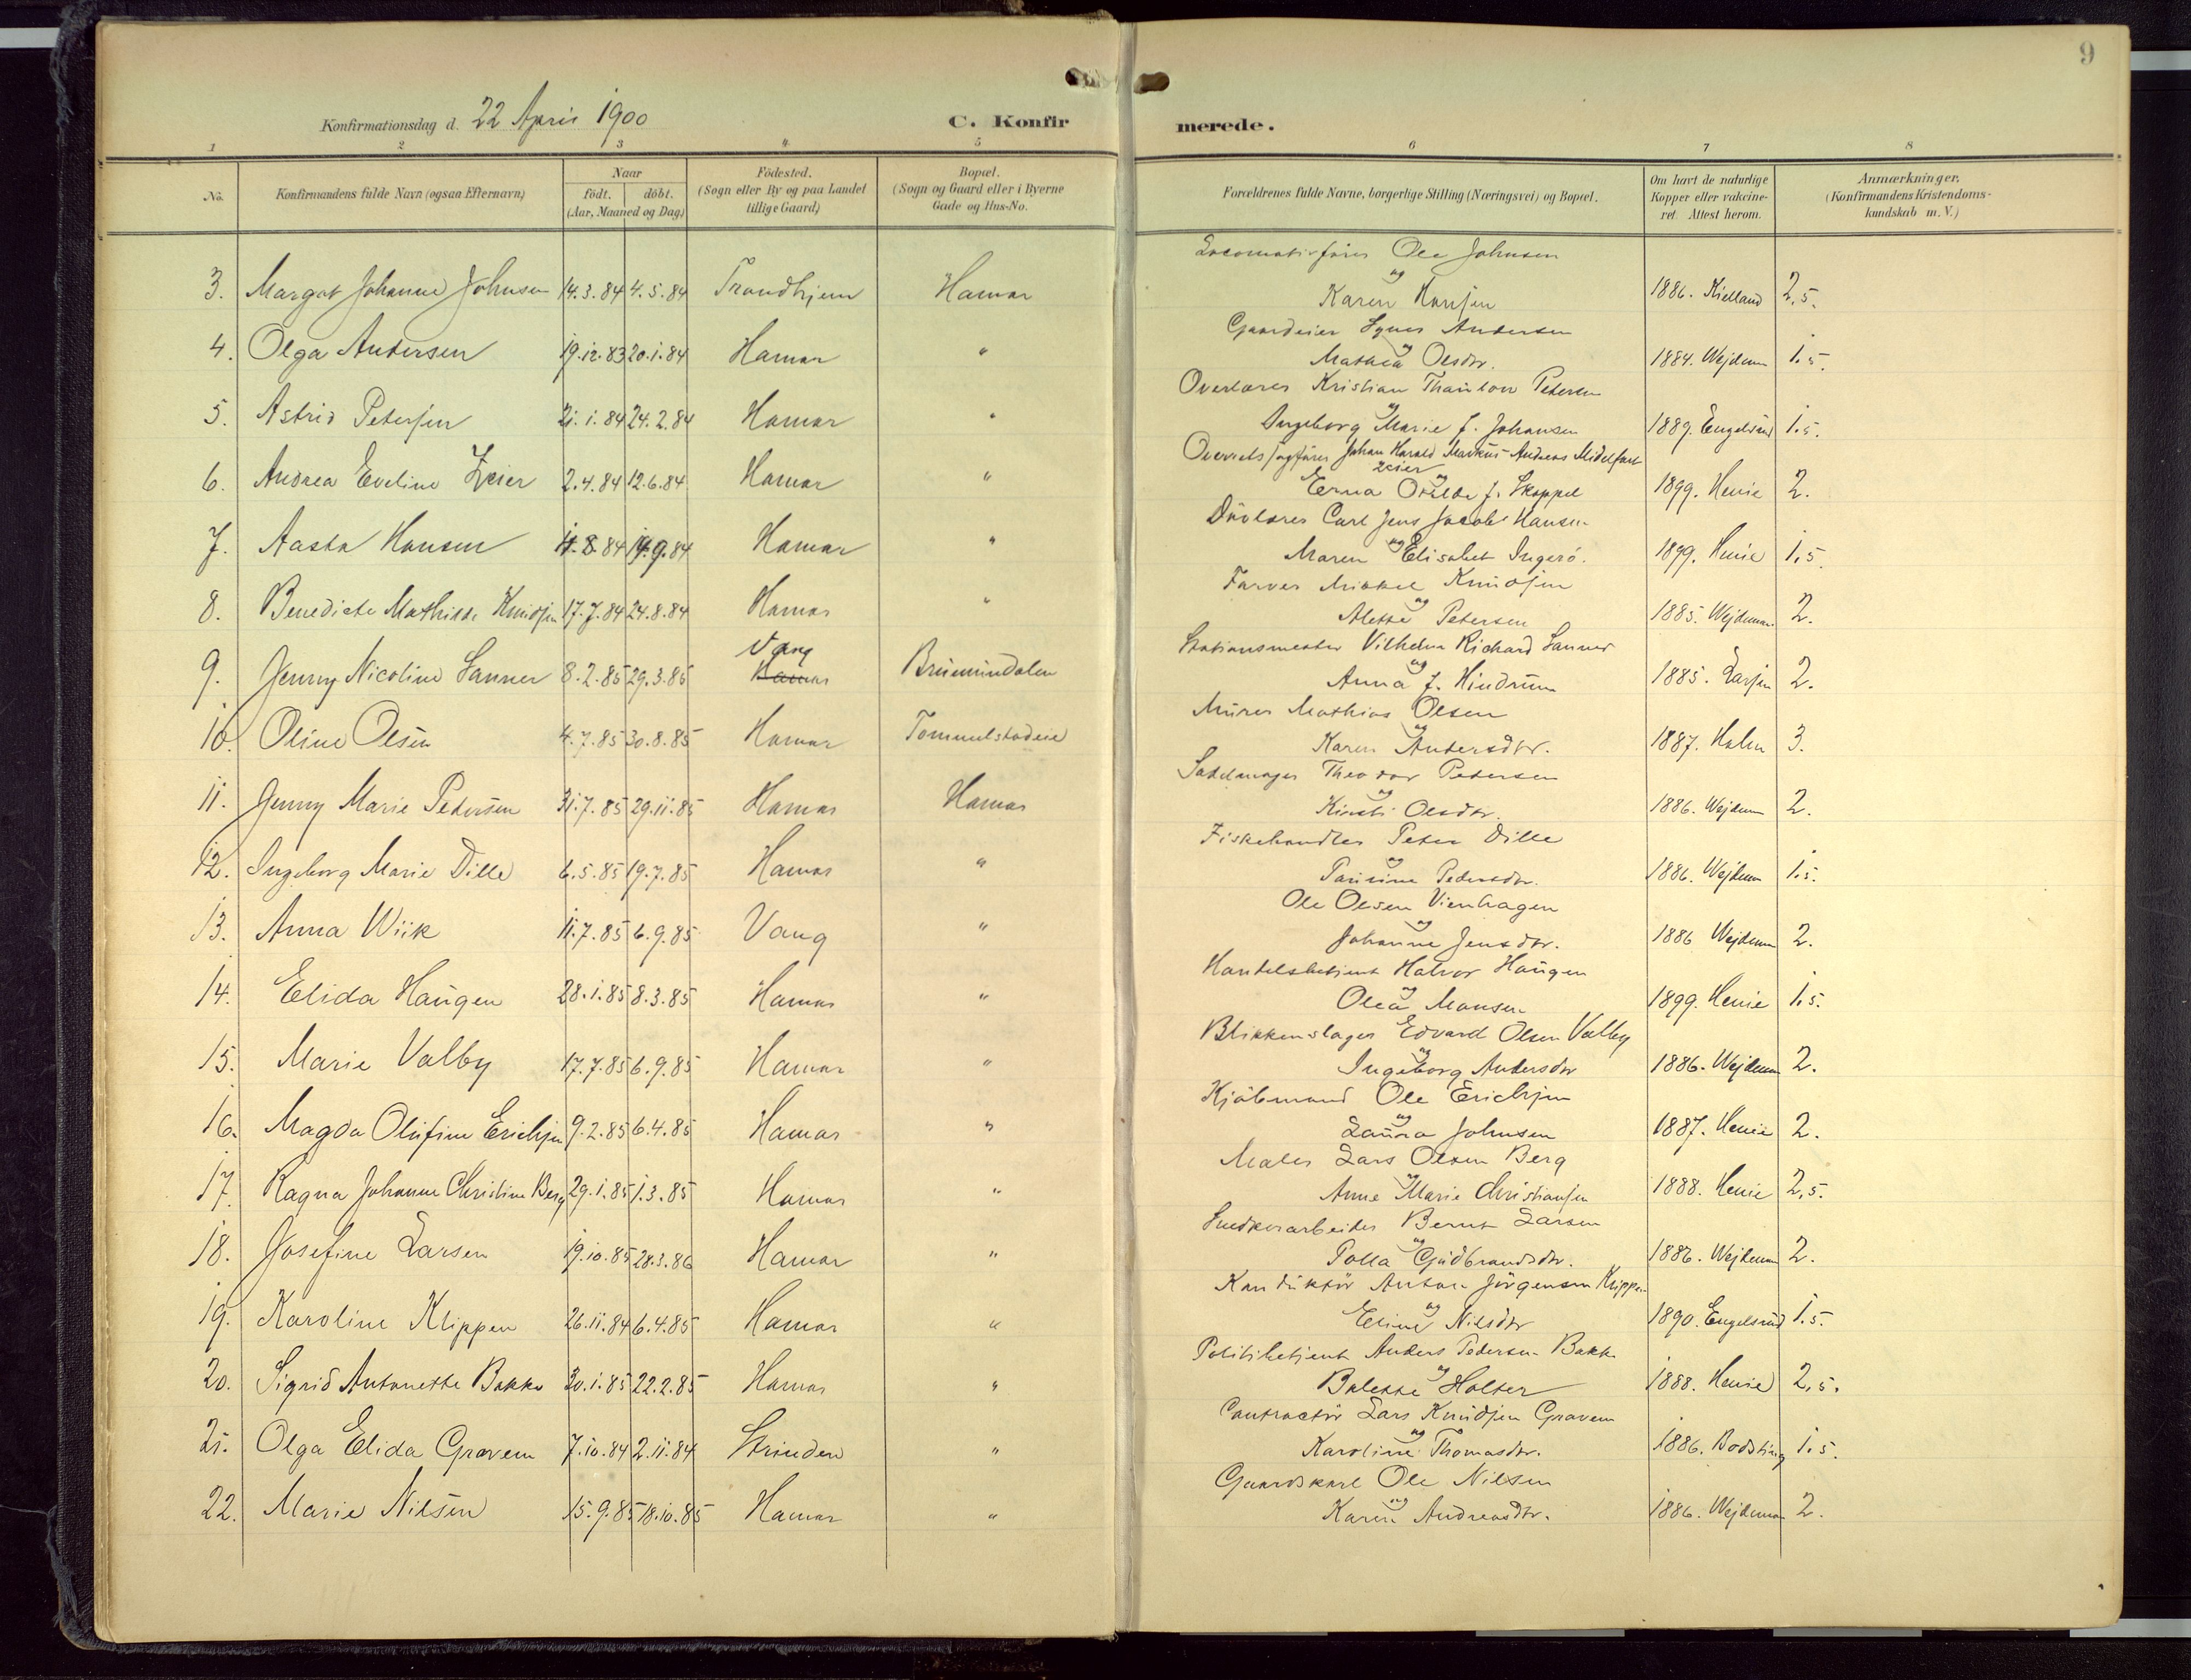 9
Konfirmationsdag d. 22 April 1900
C. Konfir
merede.
1 2 3 4 5 6 7 8
No.
Konfirmandens fulde Navn (ogsaa Efternavn)
Naar
födt. döbt.
(Aar, Maaned og Dag)
Födested.
(Sogn eller By og paa Landet
tillige Gaard)
Bopæl.
(Sogn og Gaard eller i Byerne
Gade og Hus-No.
Forældrenes fulde Navne, borgerlige Stilling (Næringsvei) og Bopæl.
Om havt de naturlige
Kopper eller vakcine-
ret. Attest herom.
Anmærkninger.
(Konfirmandens Kristendoms-
kundskab m. V.)
Locomotivfører Ole Johnsen
og
3. Margot Johanne Johnsen 14.3.84 4.5.84 Trondhjem Hamar Karen Hansen 1886. Kielland 2,5.
Gaardeier Andersen
og
4. Olga Andersen 19.12.83 20.1.84 Hamar " Mathea Olsdtr. 1884. Wejdeman 1.5.
Overlærer Kristian Petersen
og
5. Astrid Petersen 21.1.84 24.2.84 Hamar " Ingeborg Marie f. Johansen 1889. Engelsrud 1.5.
Overretssagfører Johan Harald Markus Andreas Midelfart
Zeier og
6. Andrea Eveline Zeier 2.4.84 12.6.84 Hamar " Erna f. Skappel 1899. Henie 2.
Carl Jens Jacob Hansen
og
7. Aasta Hansen 11.8.84 14.9.84 Hamar " Maren Elisabet Ingerö. 1899. Henie 1,5.
Farver Mikkel Knudsen
og
8. Benedicte Mathilde Knudsen 17.7.84 24.8.84 Hamar " Alette Petersen 1885. Wejdeman 2.
Stationsmester Vilhelm Richard Sanner
Vang
og
9. Jenny Nicoline Sanner 8.2.85 29.3.85 Hamar Brumundalen Anna f. Hindrum 1885. Larsen 2.
Murer Mathias Olsen
og
10. Oline Olsen 4.7.85 30.8.85 Hamar Tommelstadeie Karen Andersdtr. 1887. Holm 3.
Sadelmager Theodor Petersen
og
11. Jenny Marie Pedersen 31.7.85 29.11.85 Hamar Hamar Kirsti Olsdtr. 1886. Wejdeman 2.
Fiskehandler Peter Dille
og
12. Ingeborg Marie Dille 6.5.85 19.7.85 Hamar " Pedersdtr. 1886. Wejdeman 1.5.
Ole Olsen Vienhagen
og
13. Anna Wiik 11.7.85 6.9.85 Vang " Johanne Jensdtr. 1886 Wejdeman 2.
Handelsbetjent Halvor Haugen
og
14. Elida Haugen 28.1.85 8.3.85 Hamar " Olea Monsen 1899. Henie 1.5.
Blikkenslager Edvard Olsen Valby
og
15. Marie Valby 17.7.85 6.9.85 Hamar " Ingeborg Andersdtr 1886. Wejdeman 2.
Kjöbmand Ole Erichsen
og
16. Magda Olufine Erichsen 9.2.85 6.4.85 Hamar " Laura Johnsen 1887. Henie 2.
Maler Lars Olsen Berg
og
17. Ragna Johanne Christine Berg 29.1.85 1.3.85 Hamar " Anne Marie Christiansen 1888. Henie 2,5.
Snedkerarbeider Bernt Larsen
og
18. Josefine Larsen 19.10.85 28.3.86 Hamar " Polla Gudbrandsdtr. 1886. Wejdeman 2.
Konduktör Anton Jörgensen Klippen
og
19. Karoline Klippen 26.11.84 6.4.85 Hamar " Eline Nilsdtr 1890. Engelsrud 1.5.
Politibetjent Anders Pedersen Bakke
og
20. Sigrid Antonette Bakke 30.1.85 22.2.85 Hamar " Bolette Holter 1888. Henie 2,5.
Contractör Lars Knudsen Gravem
og
21. Olga Elida Gravem 7.10.84 2.11.84 Strinden " Karoline Thomasdtr. 1886. Bodsting 1.5.
Gaardskarl Ole Nilsen
og
22. Marie Nilsen 15.9.85 18.10.85 Hamar " Karen Andreasdtr. 1886. Wejdeman 2.